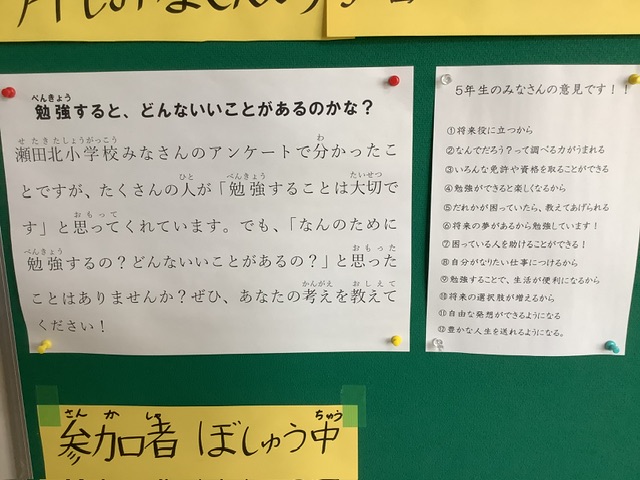 べんきょう
勉強すると、どんないいことがあるのかな？
せたきたしょうがっこう わ
瀬田北小学校みなさんのアンケートで分かったこ
ひと べんきょう たいせつ
とですが、たくさんの人が「勉強することは大切で
おもって
す」と思ってくれています。でも、「なんのために
べんきょう おもった
勉強するの？どんないいことがあるの？」と思った
かんがえ おしえて
ことはありませんか？ぜひ、あなたの考えを教えて
ください！
5年生のみなさんの意見です！！
①将来役に立つから
②なんでだろう？って調べる力がうまれる
③いろんな免許や資格を取ることができる
④勉強ができると楽しくなるから
⑤だれかが困っていたら、教えてあげられる
⑥将来の夢があるから勉強しています！
⑦困っている人を助けることができる！
⑧自分がなりたい仕事につけるから
⑨勉強することで、生活が便利になるから
⑩将来の選択肢が増えるから
⑪自由な発想ができるようになる
⑫豊かな人生を送れるようになる。
さんかしゃ ちゅう
参加者 ぼしゅう中